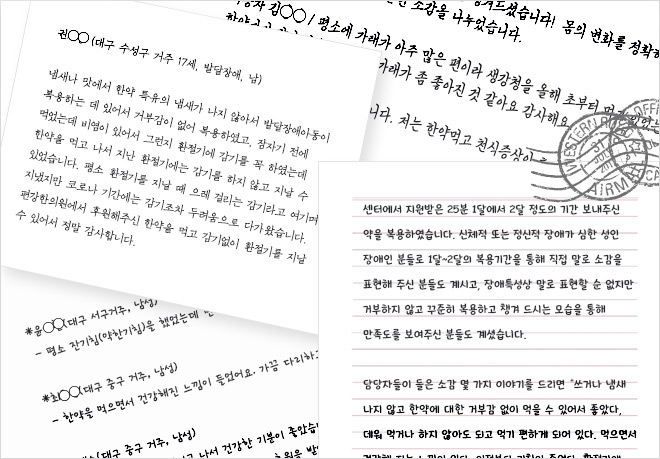 김○○ / 평소에 가래가 아주 많은 편이라 생강청을 올해 초부터
소감을 나누었습니다.
드셨습니다! 몸의 변화를 정확
가래가 좀 좋아진 것 같아요 감사해요
저는 한약먹고 천식증상이
권○○ (대구 수성구 거주 17세, 발달장애, 남)
냄새나 맛에서 한약 특유의 냄새가 나지 않아서 발달장애아동이
복용하는 데 있어서 거부감이 없어 복용하였고, 잠자기 전에
먹었는데 비염이 있어서 그런지 환절기에 감기를 꼭 하였는데
한약을 먹고 나서 지난 환절기에는 감기를 하지 않고 지날 수
있었습니다. 평소 환절기를 지날 때 으레 걸리는 감기라고 여기며
지냈지만 코로나 기간에는 감기조차 두려움으로 다가왔습니다.
편강한의원에서 후원해주신 한약을 먹고 감기없이 환절기를 지날
수 있어서 정말 감사합니다.
*윤○○(대구 서구거주, 남성)
- 평소 잔기침(약한기침)을 했었는데
*최○○(대구 중구 거주, 남성)
- 한약을 먹으면서 건강해진 느낌이 들었어요. 가끔 다리하고
(대구 중구 거주, 남성)
나서 건강한 기분이 좋았습
센터에서 지원받은 25분 1달에서 2달 정도의 기간 보내주신
약을 복용하였습니다. 신체적 또는 정신적 장애가 심한 성인
장애인 분들로 1달~2달의 복용기간을 통해 직접 말로 소감을
표현해 주신 분들도 계시고, 장애특성상 말로 표현할 순 없지만
거부하지 않고 꾸준히 복용하고 챙겨 드시는 모습을 통해
만족도를 보여주신 분들도 계셨습니다.
담당자들이 들은 소감 몇 가지 이야기를 드리면 "쓰거나 냄새
나지 않고 한약에 대한 거부감 없이 먹을 수 있어서 좋았다,
데워 먹거나 하지 않아도 되고 먹기 편하게 되어 있다. 먹으면서
WESTERN
AIRMAIL